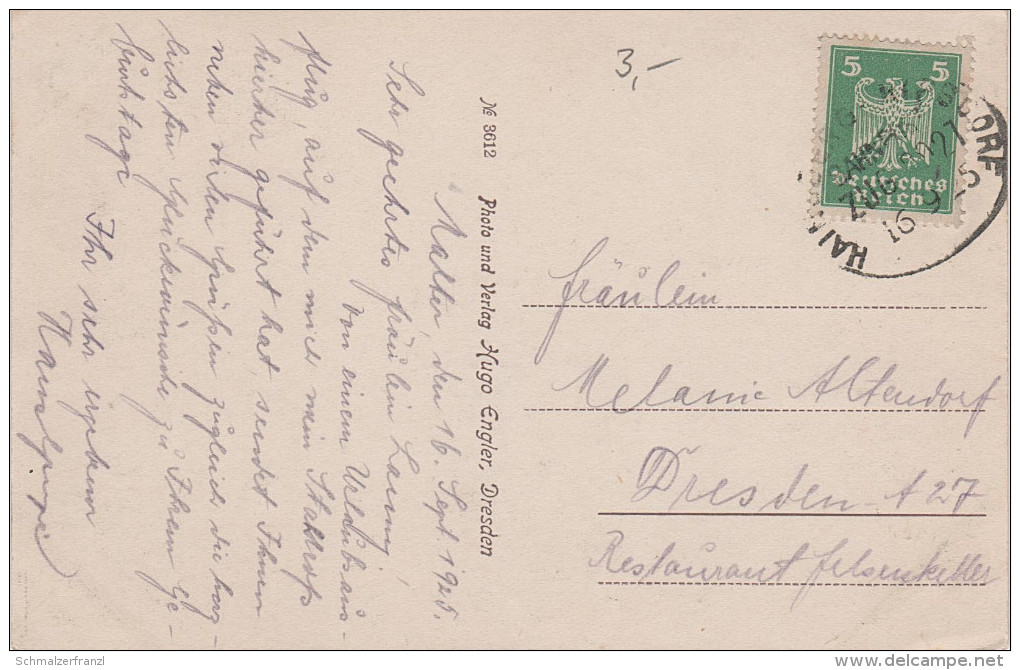 Malter, den 16. Sept. 1925.
Sehr geehrtes Fräulein
Von einem Urlaubsaus-
flug, auf dem mich mein Stahlroß
hierher geführt hat, sendet Ihnen
neben vielen Grüßen zugleich die herz-
lichsten Glückwünsche zu Ihrem Ge-
burtstage
Ihr sehr ergebener
№ 3612 Photo und Verlag Hugo Engler, Dresden
3,-
5 5
Deutsches
Reich
BAHNPOST
ZUG
16 9 25
Fräulein
Melanie Altendorf
Dresden-A 27
Restaurant Felsenkeller
Schmalzerfranzl
www.delcampe.net